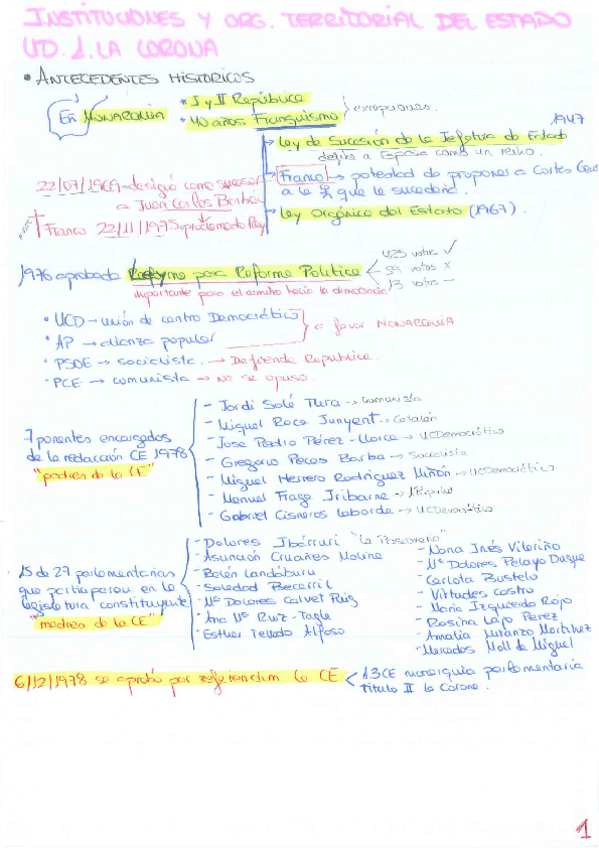 INSTITUCIONES Y ORG. TERRITORIAL DEL ESTADO
UD. 1. LA CORONA
• ANTECEDENTES HISTORICOS
En MONARQUIA
• I y II República
• 40 años Franquismo
excepciones.
1947
→ Ley de Sucesión de la Jefatura do Estado
define a España como un reino.
Franco → potestad de proponer a Cortes
a la que le sucedería.
→ Ley Orgánica del Estado (1967).
22/07/1969 → designó como sucesor
a Juan Carlos Borbón
† Franco 22/11/1975 proclamado Rey
1976 aprobada Reforma para Reforma Política
425 votos ✓
59 votos X
13 votos —
importante para el camino hacia la democracia
• UCD → unión de centro Democrático
• AP → alianza popular
a favor MONARQUIA
• PSOE → socialista. → Defiende República.
• PCE → comunista → no se opuso.
7 ponentes encargados
de la redacción CE 1978
"padres de la CE"
- Jordi Solé Tura → Comunista
- Miguel Roca Junyent → Catalán
- Jose Pedro Pérez-Llorca → UCDemocrático
- Gregorio Peces Barba → Socialista
- Miguel Herrero Rodriguez Miñón → UCDemocrático
- Manuel Fraga Iribarne →
- Gabriel Cisneros Laborda → UCDemocrático
15 de 27 parlamentarias
que participaron en la
legislatura constituyente
"madres de la CE"
- Dolores Ibárruri "La Pasionaria"
- Asunción Cruañes Molina
- Belén Landáburu
- Soledad Becerril
- Mª Dolores Calvet Puig
- Ana Mª Ruiz-Tagle
- Esther Tellado Alfoso
- Nona Inés Vilariño
- Mª Dolores Pelayo Duque
- Carlota Bustelo
- Virtudes Castro
- Maria Izquierdo Rojo
- Rosina Lajo Pérez
- Amalia Miranzo Martinez
- Mercedes Moll de Miguel
6/12/1978 se aprobó por referendum la CE
1.3CE monarquía parlamentaria
Título II la Corona.
1